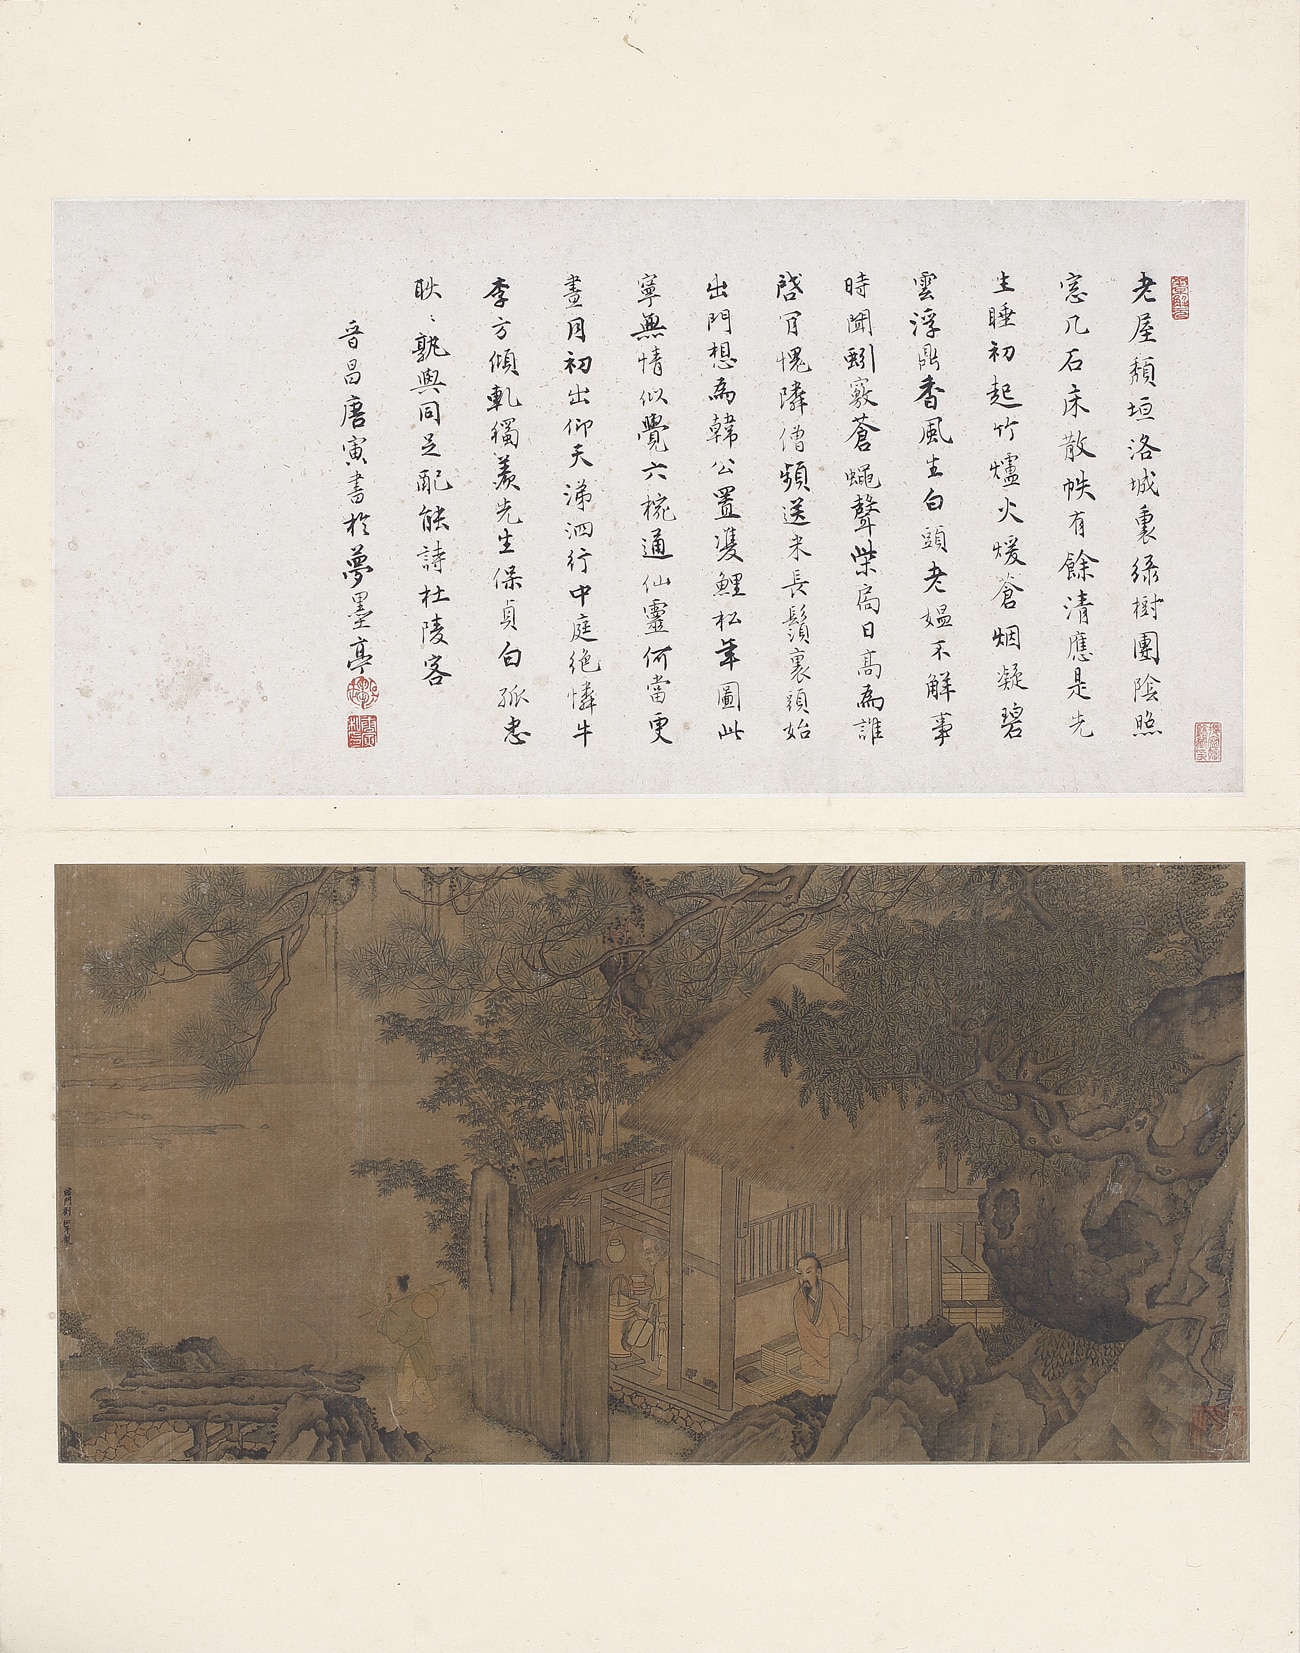 老屋頹垣洛城裏綠樹團陰照
窓几石床散帙有餘清應是先
生睡初起竹爐火煖蒼烟凝碧
雲浮鼎香風生白頭老媪不解事
時聞蚓竅蒼蠅聲柴扃日高為誰
啓肎愧隣僧頻送米長鬚裹頭始
出門想為韓公置雙鯉松年圖此
寧無情似覺六椀通仙靈何當更
畫月初出仰天涕泗行中庭絶憐牛
李方傾軋獨羨先生保貞白孤忠
耿〻孰與同足配能詩杜陵客
晉昌唐寅書於夢墨亭
門劉松年